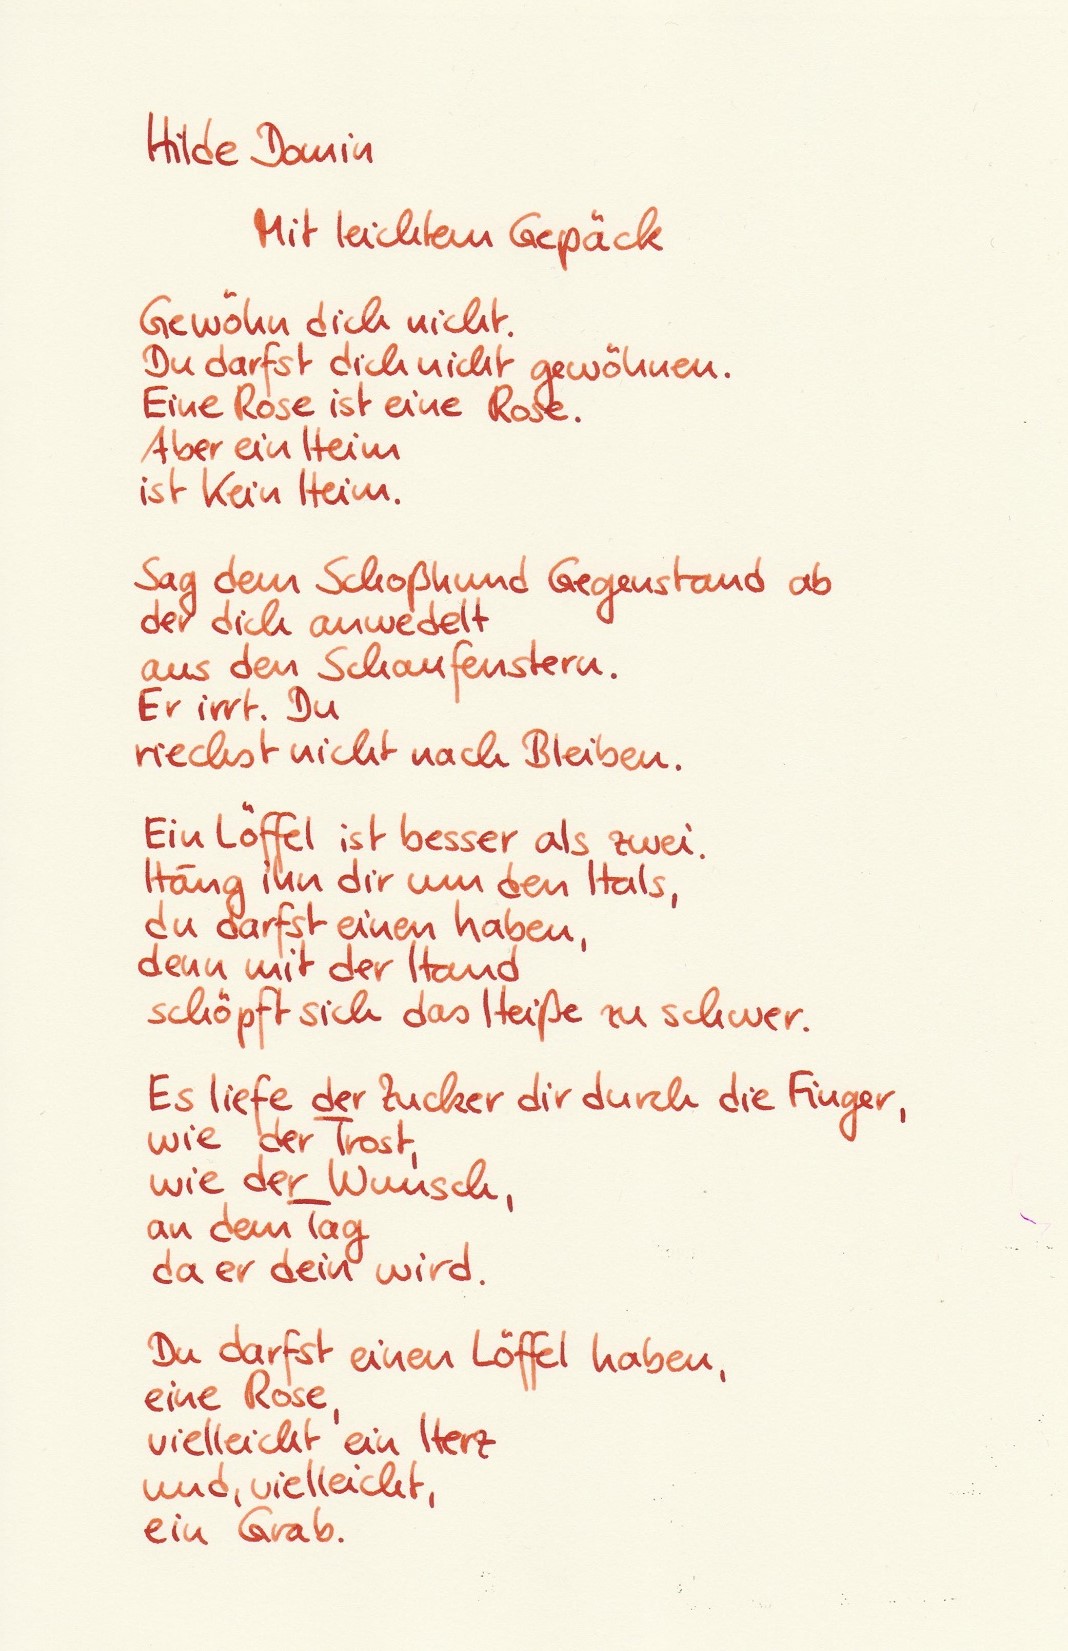 Hilde Domin
Mit leichtem Gepäck
Gewöhn dich nicht.
Du darfst dich nicht gewöhnen.
Eine Rose ist eine Rose.
Aber ein Heim
ist kein Heim.
Sag dem Schoßhund Gegenstand ab
der dich anwedelt
aus den Schaufenstern.
Er irrt. Du
riechst nicht nach Bleiben.
Ein Löffel ist besser als zwei.
Häng ihn dir um den Hals,
du darfst einen haben,
denn mit der Hand
schöpft sich das Heiße zu schwer.
Es liefe der Zucker dir durch die Finger,
wie der Trost,
wie der Wunsch,
an dem Tag
da er dein wird.
Du darfst einen Löffel haben,
eine Rose,
vielleicht ein Herz
und, vielleicht,
ein Grab.